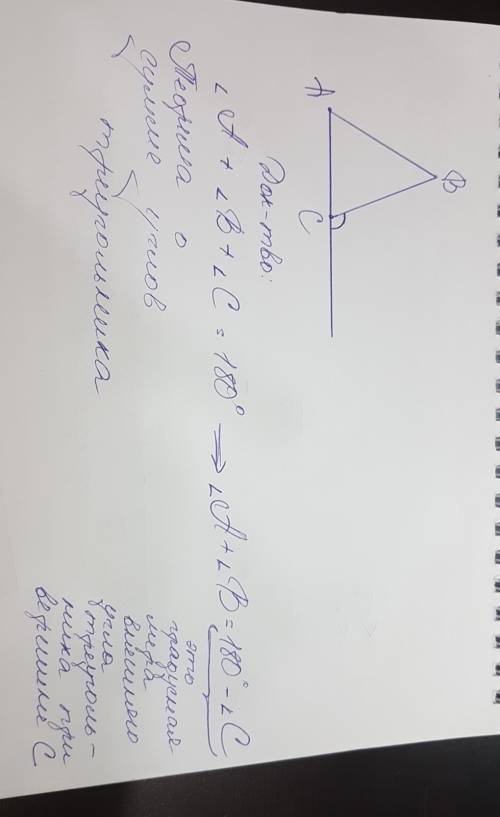 B
A
C
Док-тво:
∠A + ∠B + ∠C = 180° ⇒ ∠A + ∠B = 180° - ∠C
Теорема о
сумме углов
треугольника
это
градусная
мера
внешнего
угла
треуголь-
ника при
вершине C